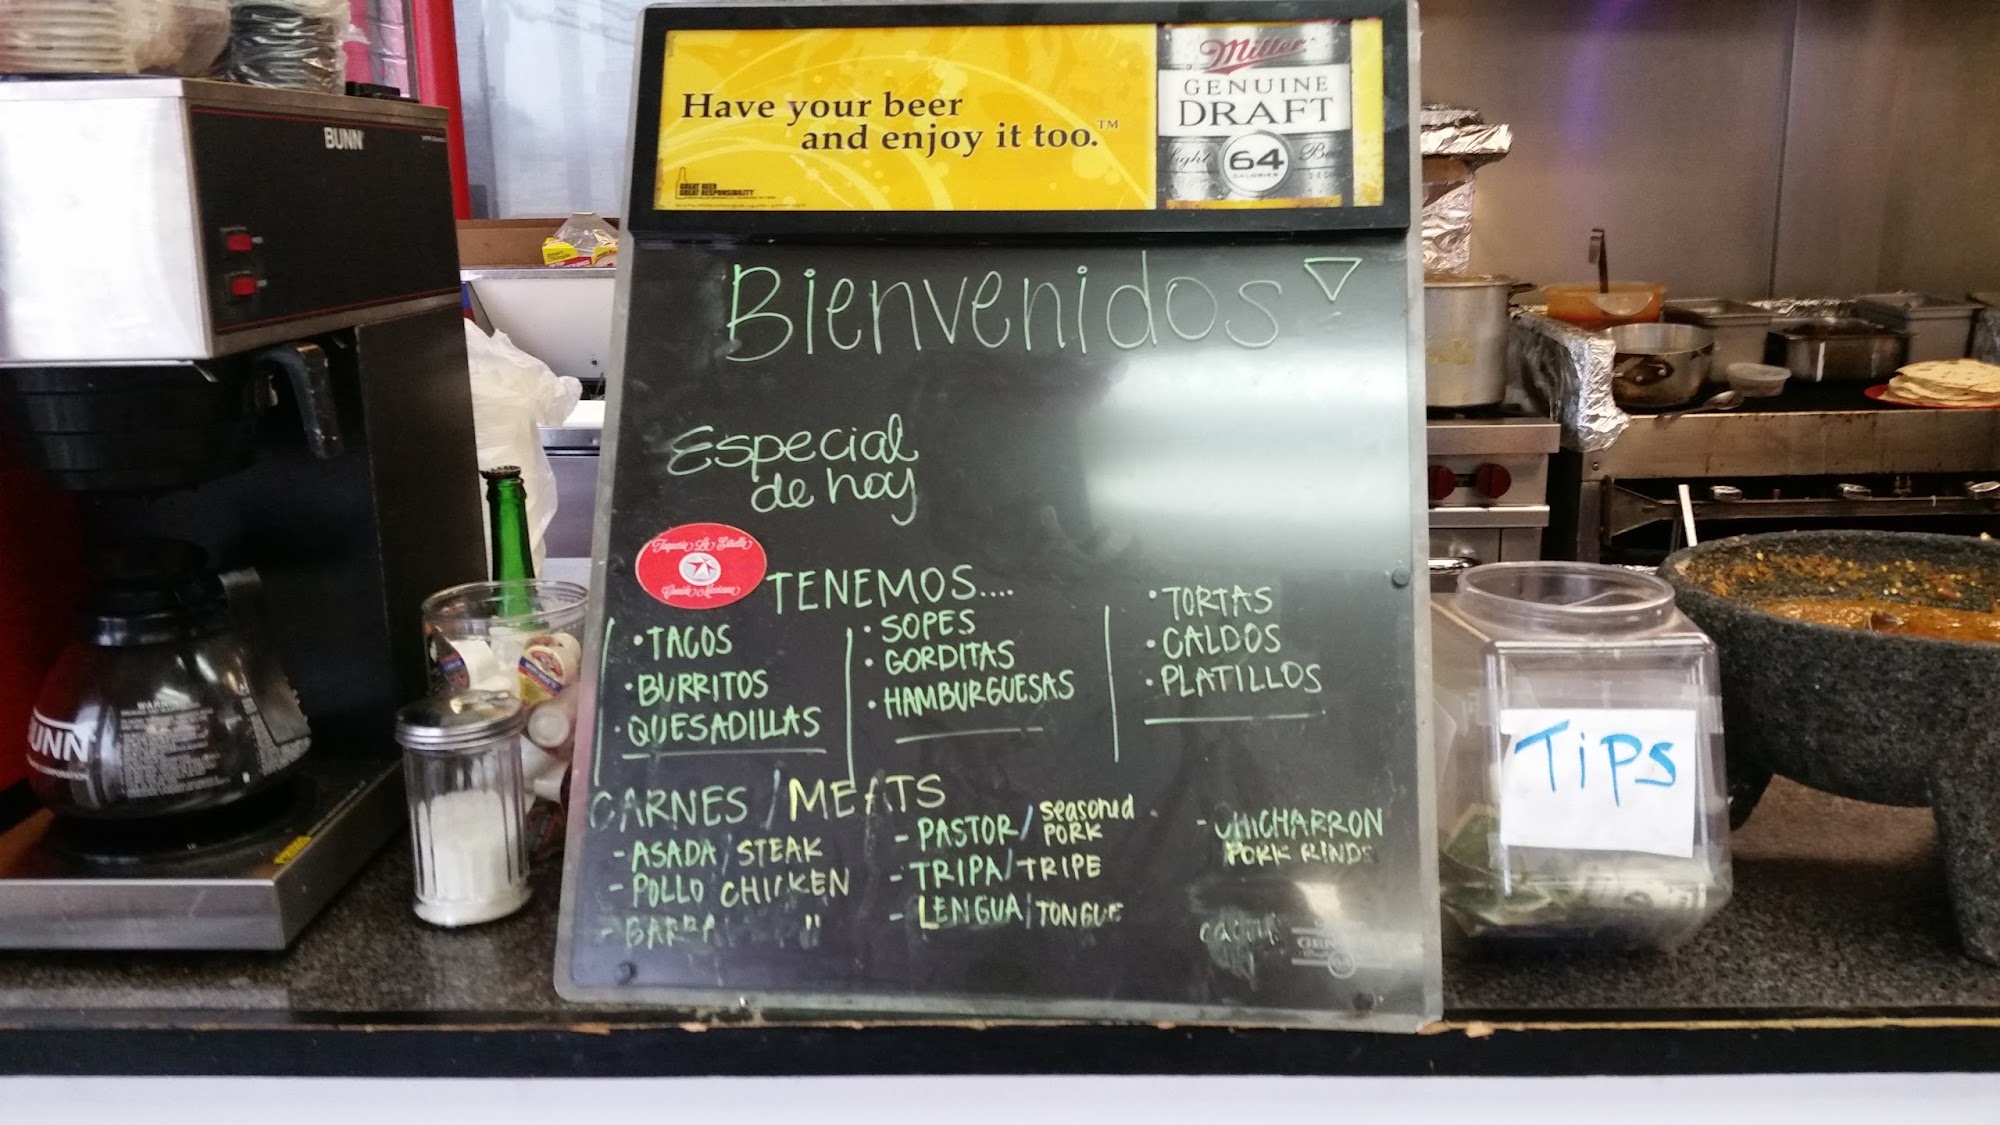 BUNN
Have your beer
and enjoy it too.™
GREAT BEER
GREAT RESPONSIBILITY
Miller
GENUINE
DRAFT
Light 64 Beer
CALORIES
Bienvenidos
Especial
de hoy
Taqueria La Estrella
TENEMOS....
• TACOS
• BURRITOS
• QUESADILLAS
• SOPES
• GORDITAS
• HAMBURGUESAS
• TORTAS
• CALDOS
• PLATILLOS
CARNES / MEATS
- ASADA / STEAK
- POLLO CHICKEN
- BARBA "
- PASTOR / seasoned PORK
- TRIPA / TRIPE
- LENGUA / TONGUE
- CHICHARRON
PORK RINDS
TiPS
UNN
WARNING